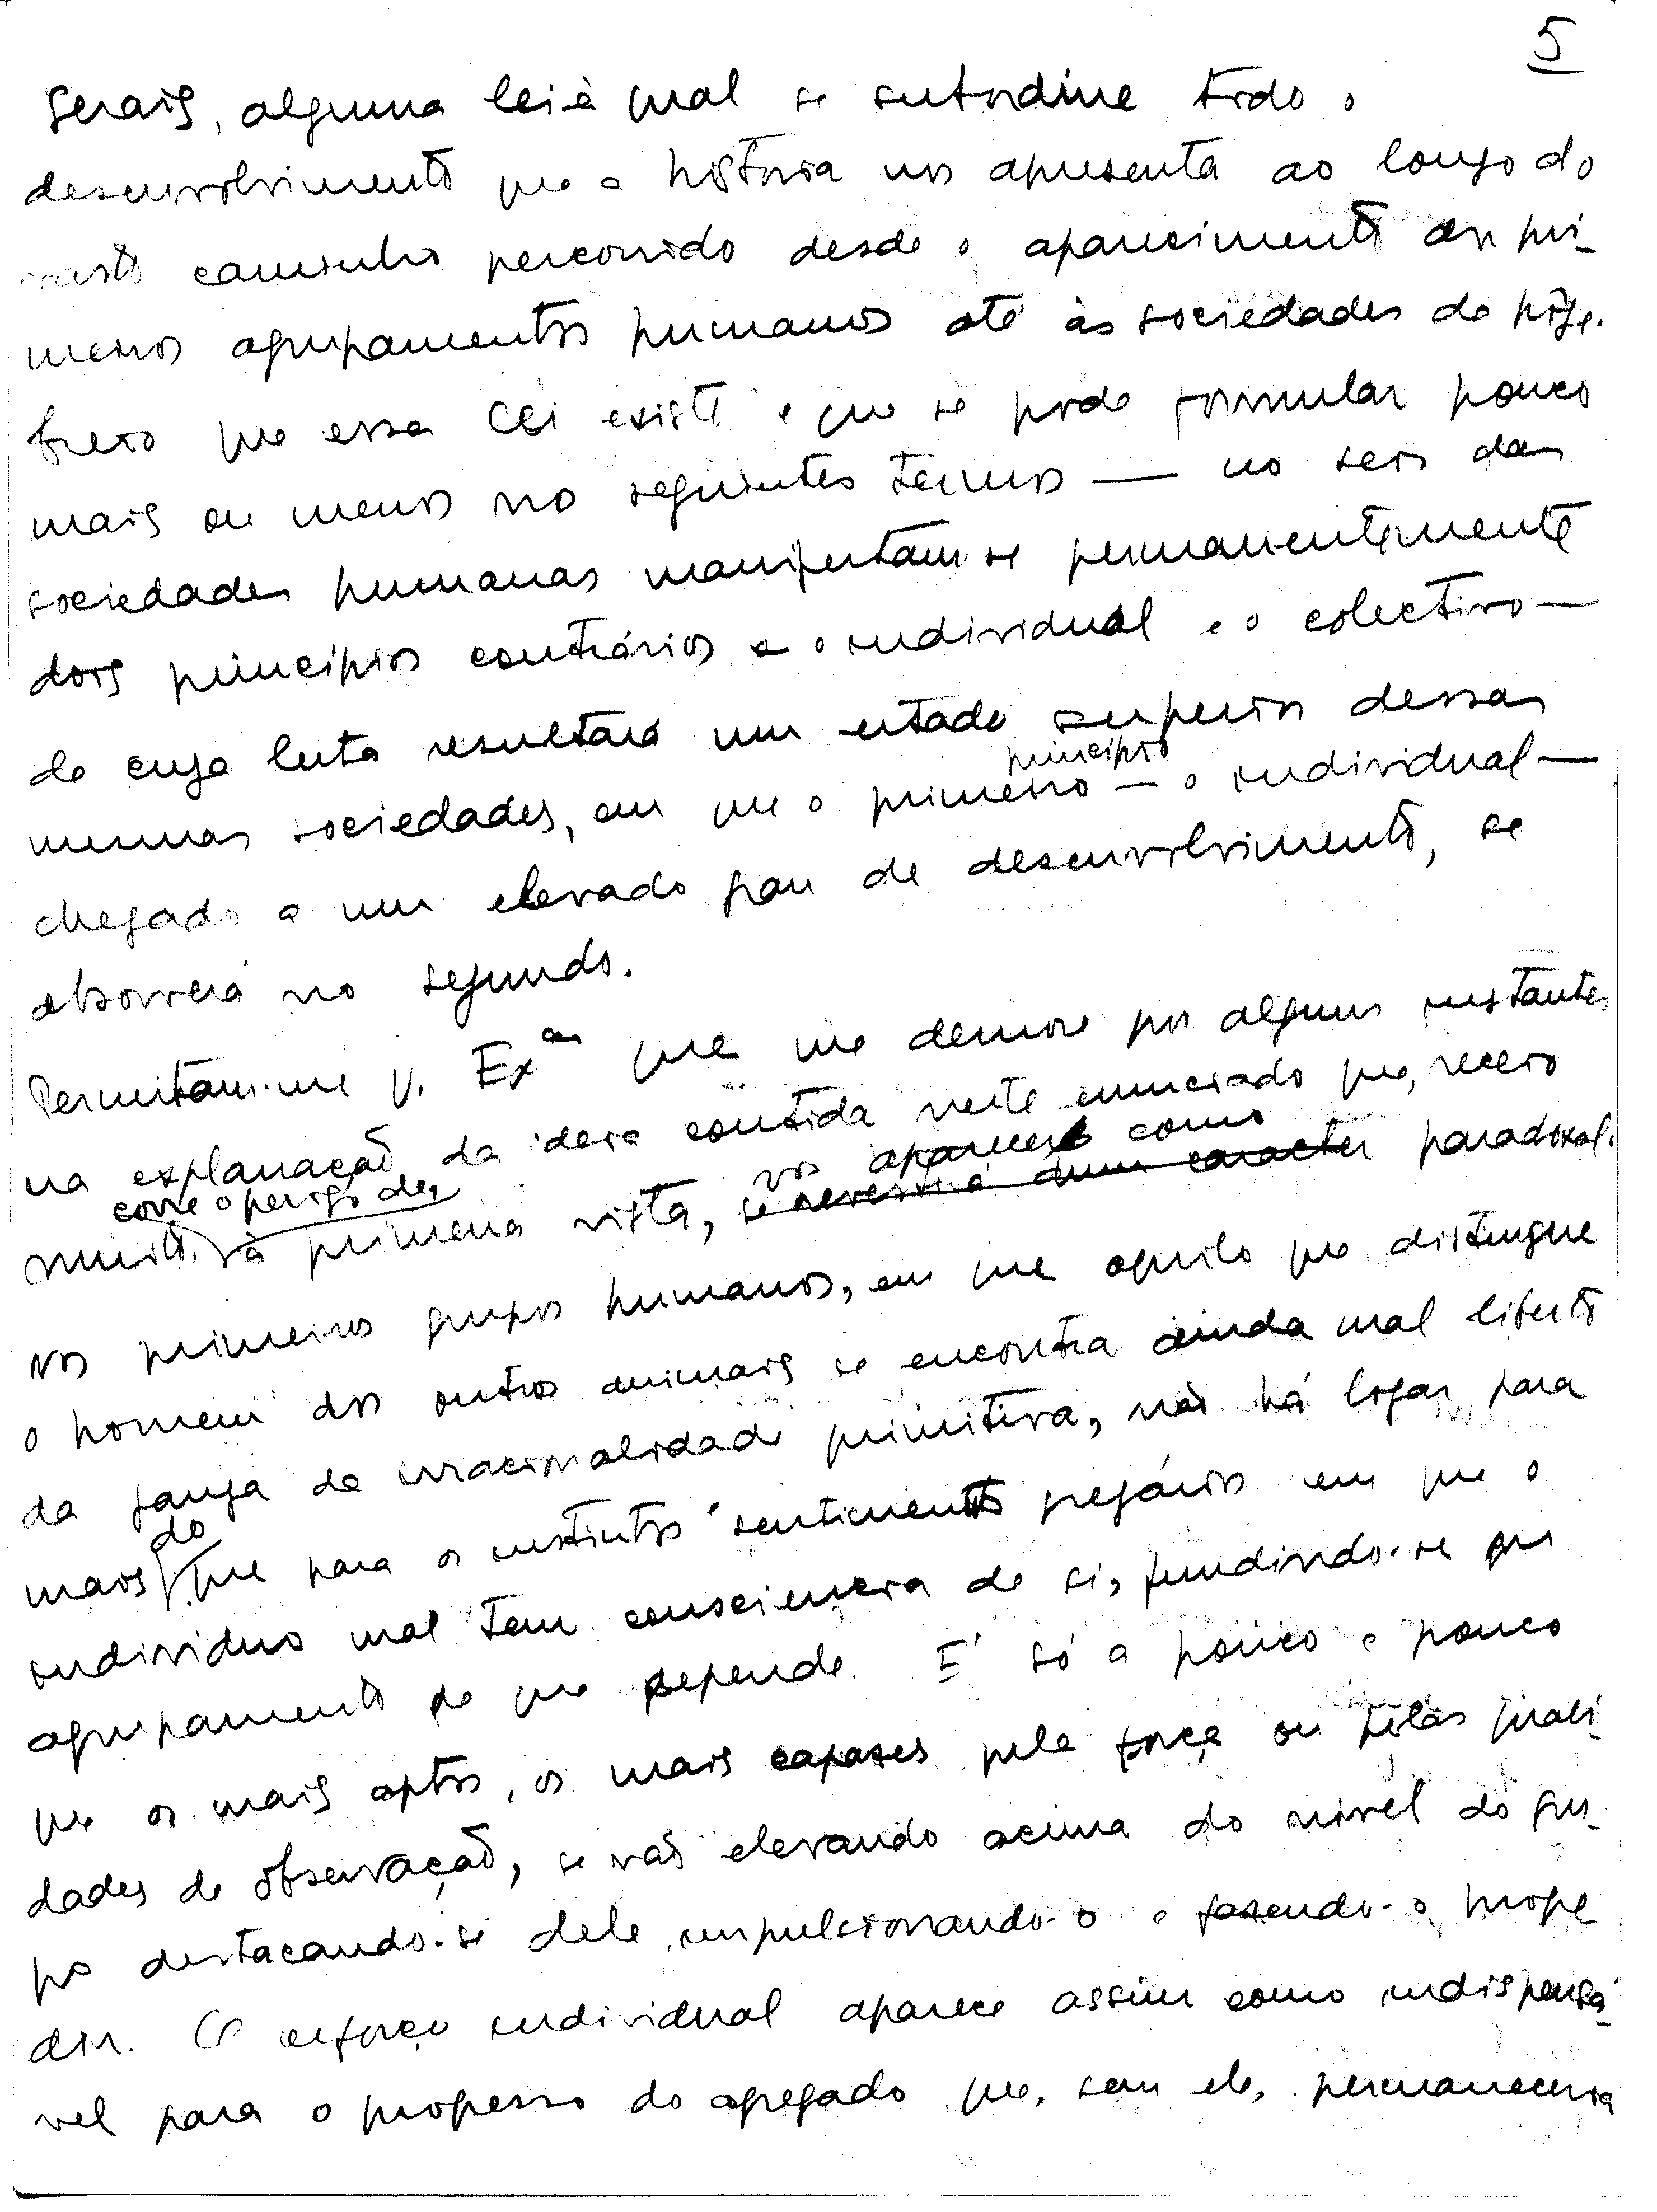 5
gerais, alguma lei à qual se subordine todo o
desenvolvimento que a história nos apresenta ao longo do
vasto caminho percorrido desde o aparecimento dos pri-
meiros agrupamentos humanos até às sociedades de hoje.
Creio que essa lei existe e que se pode formular pouco
mais ou menos nos seguintes termos — no seio das
sociedades humanas manifestam-se permanentemente
dois princípios contrários o individual e o colectivo —
de cuja luta resultará um estado superior dessas
mesmas sociedades, em que o primeiro princípio — o individual —
chegado a um elevado grau de desenvolvimento, se
absorverá no segundo.
Permitam-me V. Exas que me demore por alguns instantes
na explanação da ideia contida neste enunciado que, receio
muito, corre o perigo de, à primeira vista, se revestirá dum caracter nos aparecer como paradoxal.
Nos primeiros grupos humanos, em que aquilo que distingue
o homem dos outros animais se encontra ainda mal liberto
da ganga da irracionalidade primitiva, não há logar para
mais do que para os instintos e sentimentos gregários em que o
indivíduo mal tem consciencia de si, fundindo-se no
agrupamento de que depende. É só a pouco e pouco
que os mais aptos, os mais capazes pela força ou pelas quali-
dades de observação, se vão elevando acima do nivel do gru-
po destacando-se dele, impulsionando-o e fazendo-o progre-
dir. O esforço individual aparece assim como indispensá-
vel para o progresso do agregado que, sem ele, permaneceria